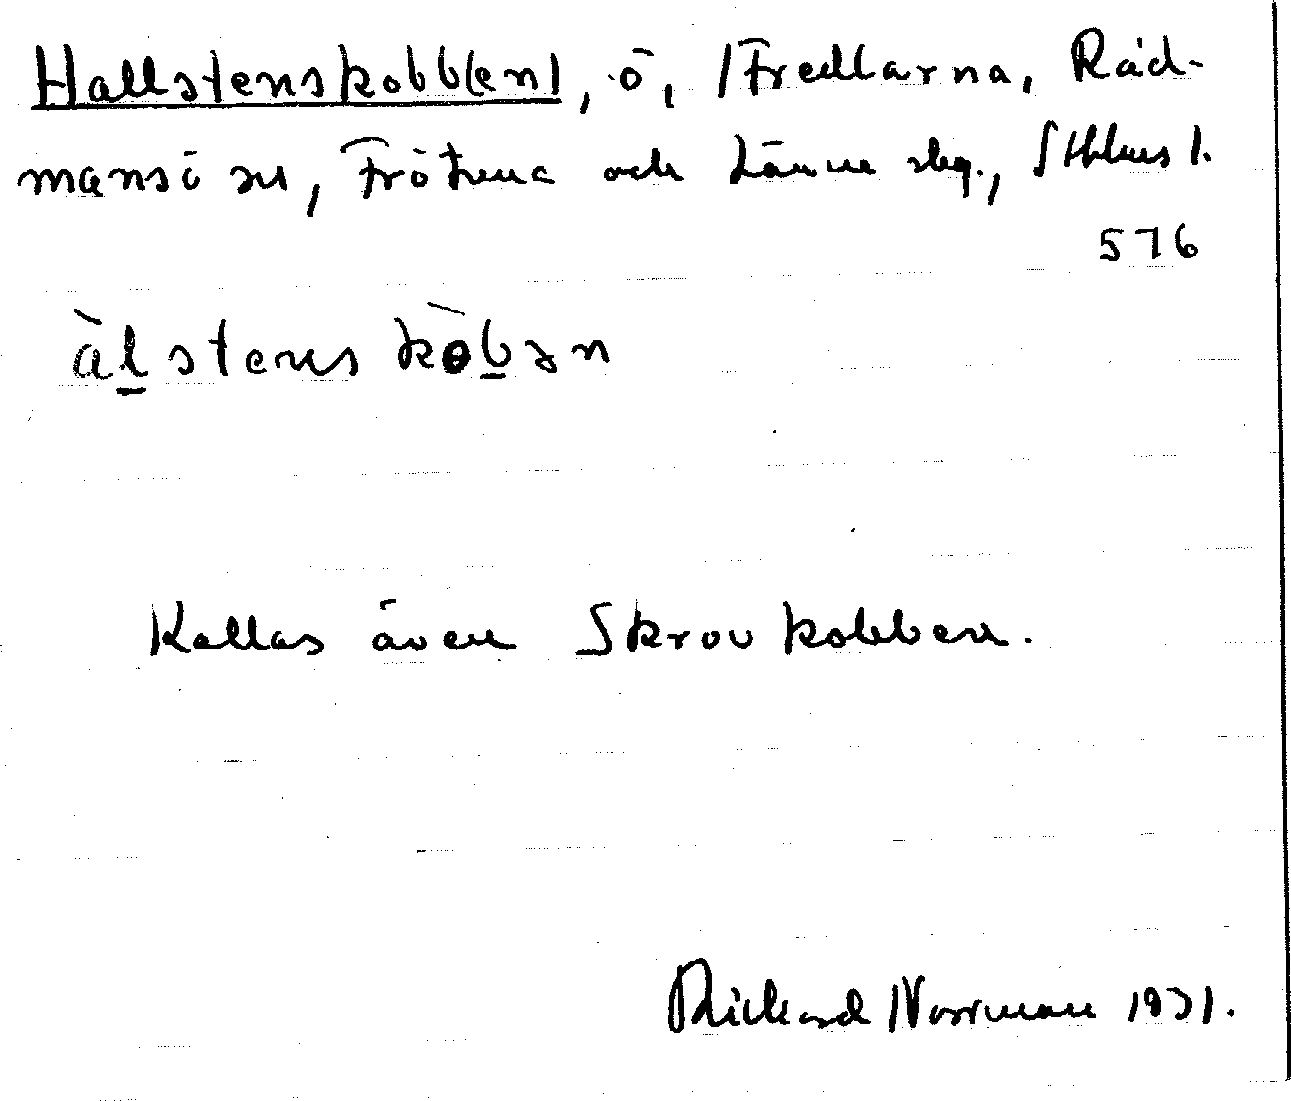 Hallstenskobb(en), ö, Fredlarna, Råd-
mansö sn, Frötuna och Länna skg., Sthlms l.
576
àl̲stens kòb̲ən
Kallas även Skrovkobben.
Rickard Norrman 1931.